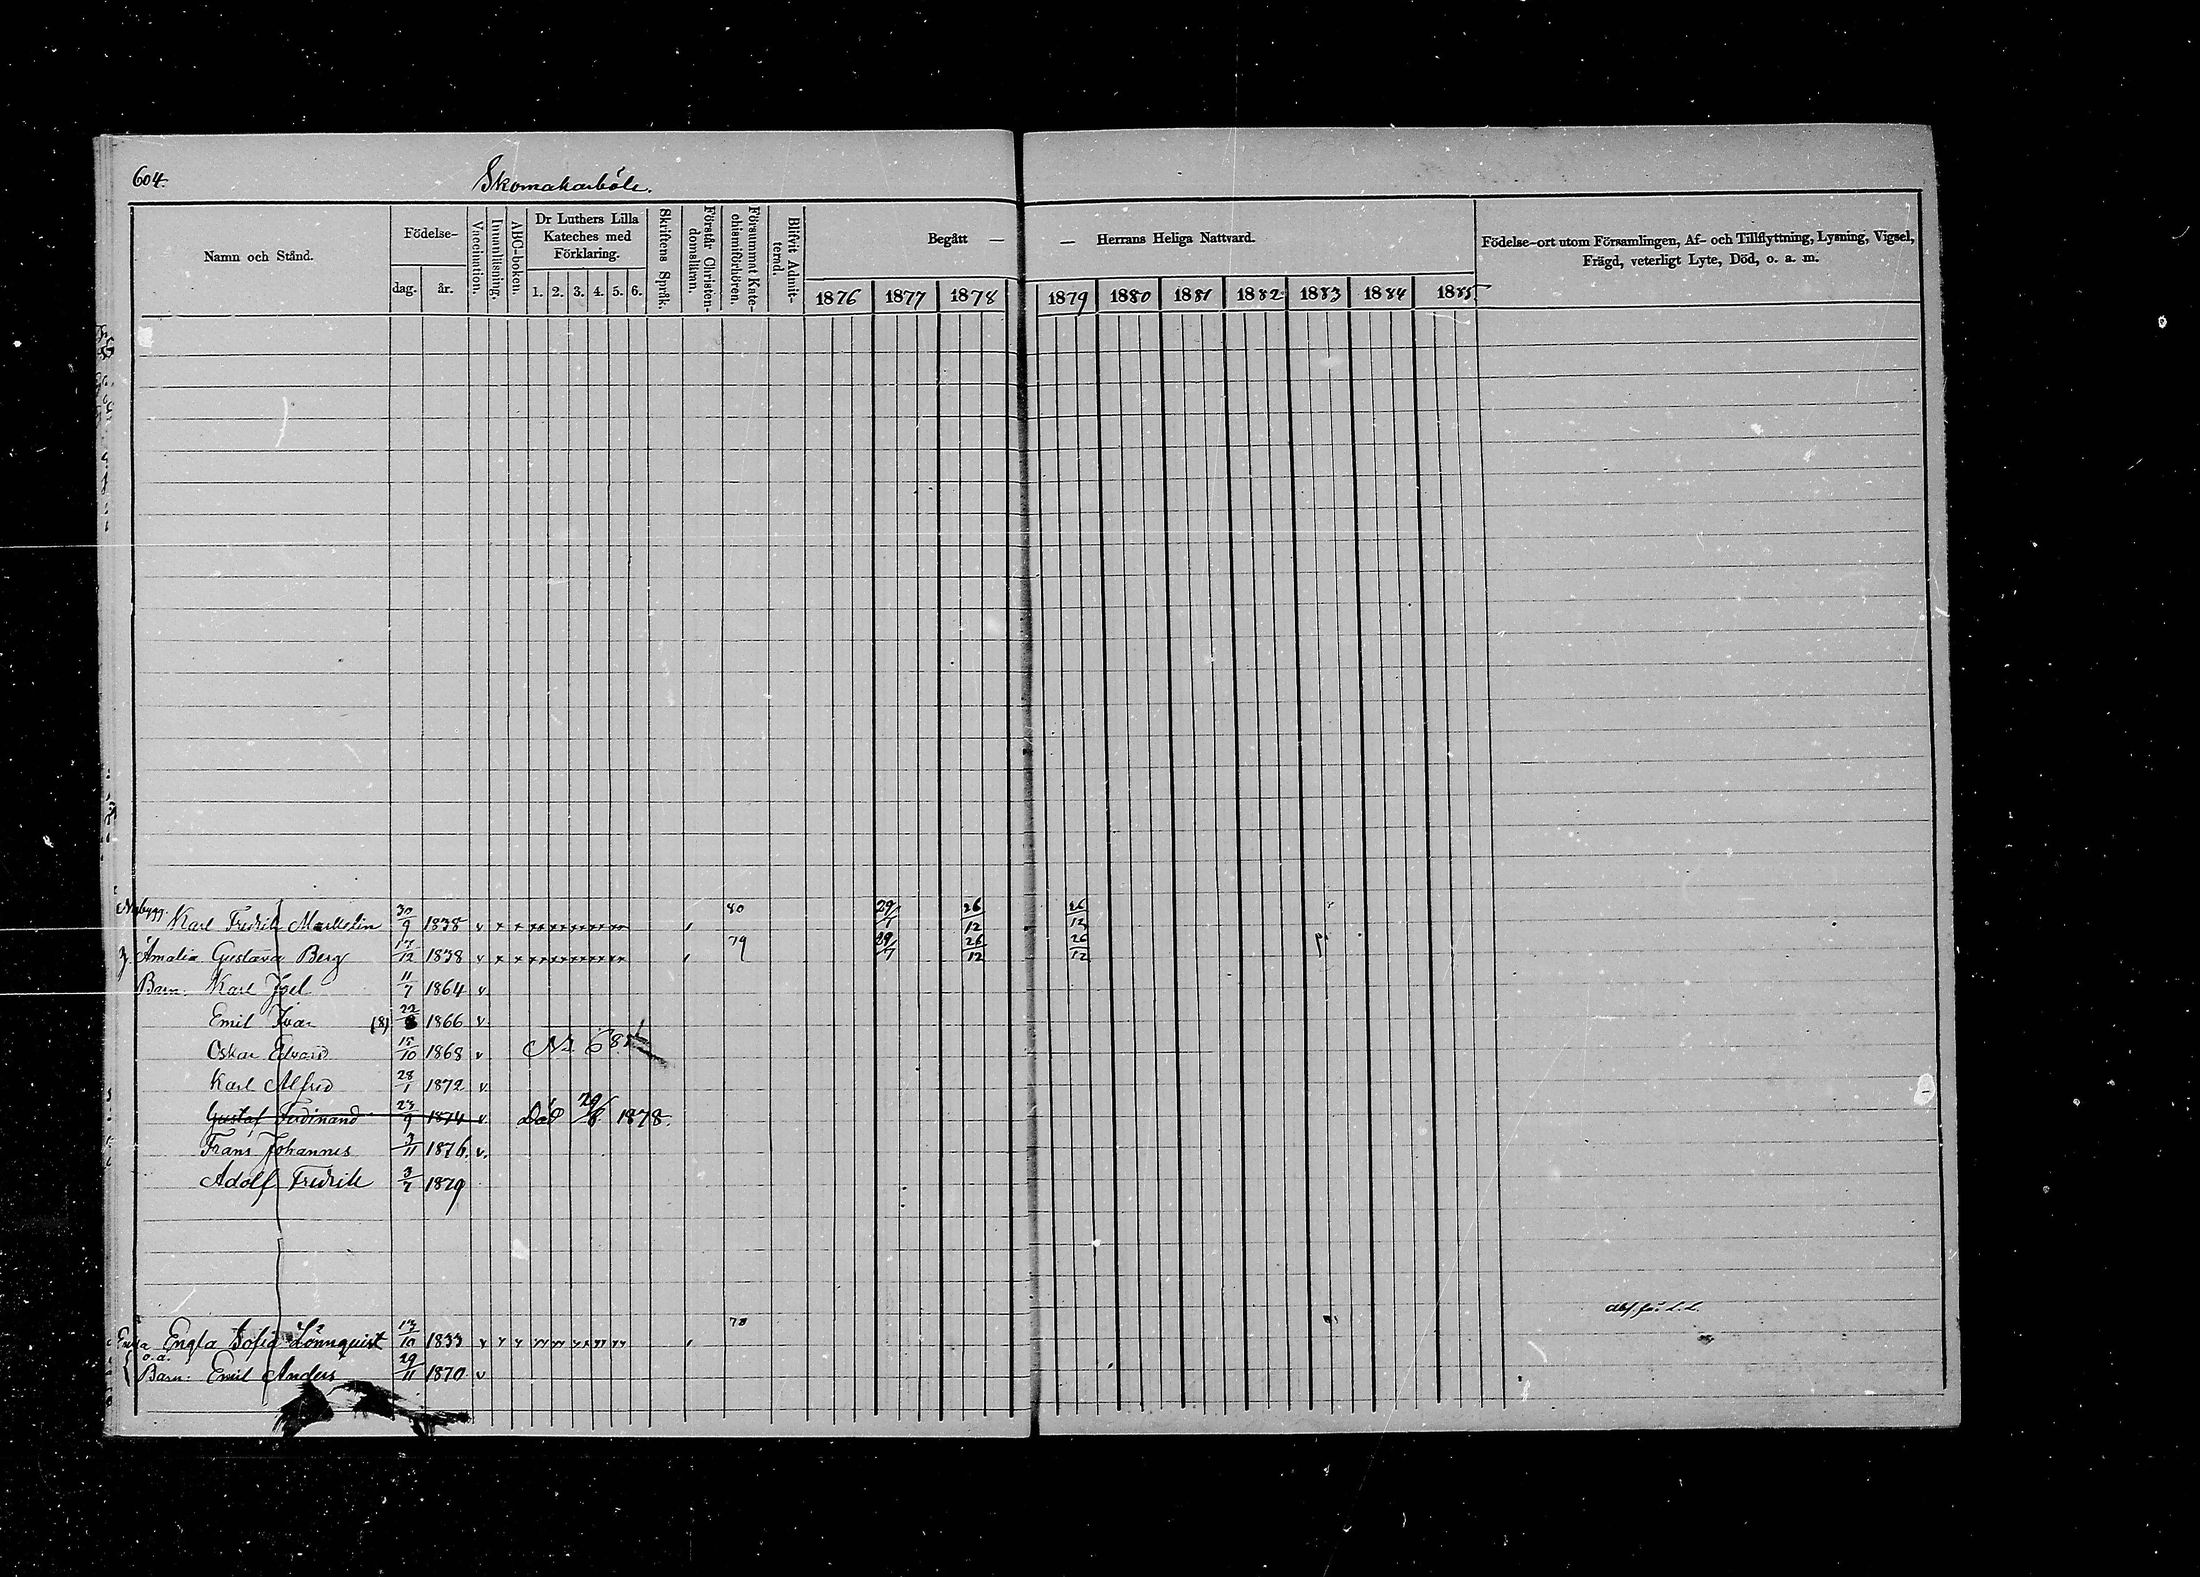 604.
Skomakarböle.
Namn och Stånd.
Födelse-
dag.
år.
Vaccination.
Innanläsning.
ABC-boken.
Dr Luthers Lilla
Kateches med
Förklaring.
1. 2. 3. 4. 5. 6.
Skriftens Språk.
Förstår Christen-
domslämn.
Försummat Kate-
chismiförhören.
Blifvit Admit-
terad.
Begått — — Herrans Heliga Nattvard.
1876 1877 1878 1879 1880 1881 1882 1883 1884 1885
Födelse-ort utom Församlingen, Af- och Tillflyttning, Lysning, Vigsel,
Frägd, veterligt Lyte, Död, o. a. m.
Nybygg. Karl Fredrik 30/9 1838 v 80 29/7 26/12 26/12
Amalia Gustava Berg 17/12 1838 v 79 29/7 26/12 26/12
Barn: Karl Joel 11/7 1864 v
Emil Ivar (8) 22/8 1866 v
Oskar Edvard 15/10 1868 v
Karl Alfred 28/1 1872 v
Gustaf Ferdinand 23/9 1874 v Död 1878.
Frans Johannes 1876. v.
Adolf Fredrik 3/7 1879
Enka Engla Sofia Lönnquist 13/10 1833 v 78
o.ä.
Barn: Emil Anders 29/11 1870 v